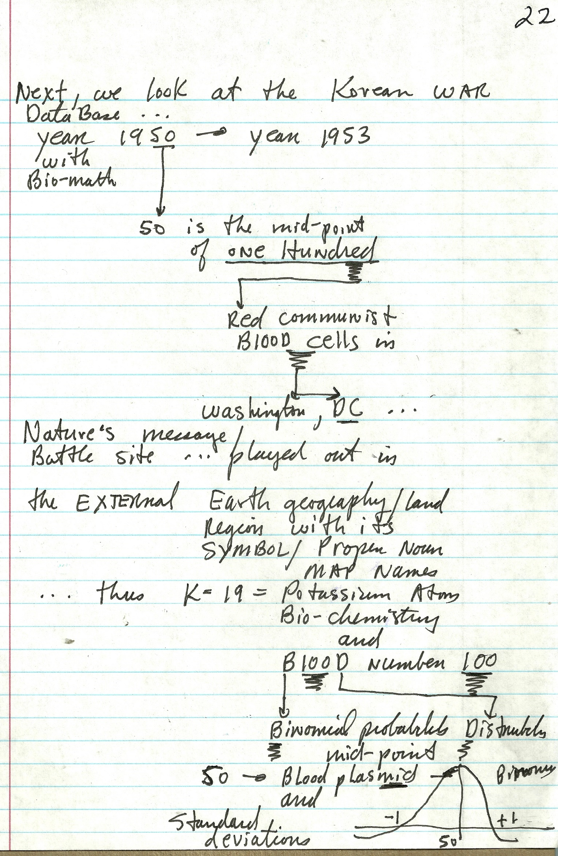 22
Next, we look at the Korean WAR
Data Base ...
year 1950 → year 1953
with
Bio-math
50 is the mid-point
of ONE Hundred
Red communist
B100D cells in
Washington, DC ...
Nature's message/
Battle site ... played out in
the EXTERNAL Earth geography/Land
Region with its
SYMBOL/ Proper Noun
MAP Names
... thus K = 19 = Potassium Atom
Bio-chemistry
and
B100D Number 100
Binomial probability
mid-point
50 → Blood plasmid →
and
-1 +1
Standard
deviations 50